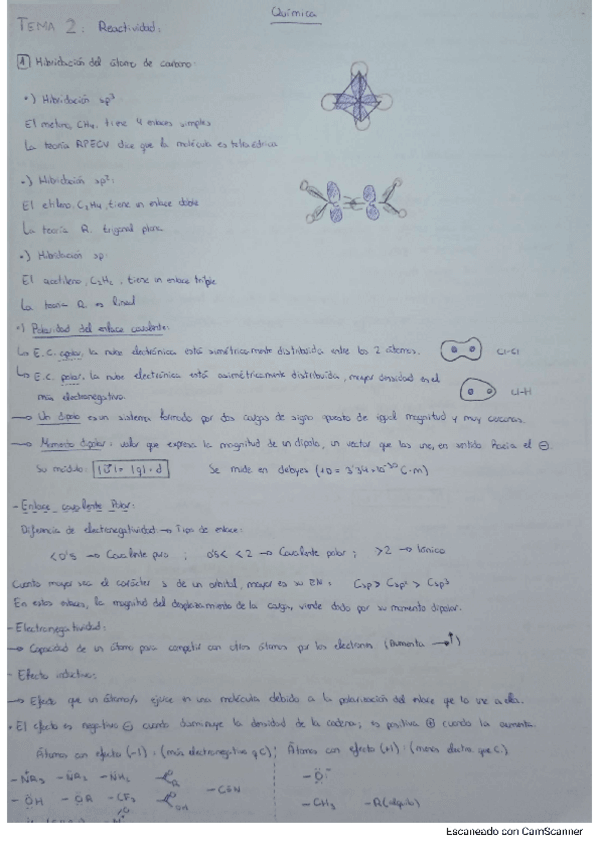 Química
TEMA 2: Reactividad:
1 Hibridación del átomo de carbono:
•) Hibridación sp³
El metano, CH₄, tiene 4 enlaces simples
La teoría RPECV dice que la molécula es tetraédrica
•) Hibridación sp²:
El etileno, C₂H₄, tiene un enlace doble
La teoría R. trigonal plana.
•) Hibridación sp:
El acetileno, C₂H₂, tiene un enlace triple
La teoría R es lineal
•) Polaridad del enlace covalente:
↳ E.C. apolar, la nube electrónica está simétricamente distribuida entre los 2 átomos. Cl-Cl
↳ E.C. polar, la nube electrónica está asimétricamente distribuida, mayor densidad en el
más electronegativo.
→ Un dipolo es un sistema formado por dos cargas de signo opuesto de igual magnitud y muy cercanas.
→ Momento dipolar: valor que expresa la magnitud de un dipolo, un vector que las une, en sentido hacia el ⊖.
Su módulo: = |q|·d Se mide en debyes (1D = 3'34·10⁻³⁰ C·m)
- Enlace covalente Polar:
Diferencia de electronegatividad → Tipo de enlace:
<0'5 → Covalente puro ; 0'5< <2 → Covalente polar ; >2 → Iónico
Cuanto mayor sea el carácter s de un orbital, mayor es su EN: Csp > Csp² > Csp³
En estos enlaces, la magnitud del desplazamiento de la carga, viene dado por su momento dipolar.
- Electronegatividad:
→ Capacidad de un átomo para competir con otros átomos por los electrones (Aumenta →↑)
- Efecto inductivo:
→ Efecto que un átomo/s ejerce en una molécula debido a la polarización del enlace que lo une a ella.
• El efecto es negativo ⊖ cuando disminuye la densidad de la cadena; es positiva ⊕ cuando la aumenta.
Átomos con efecto (-I): (más electronegativo q C); Átomos con efecto (+I): (menos electro. que C.)
-NR₃ -NR₂ -NH₂ -O⁻
-OH -OR -CF₃ -C≡N -CH₃ -R (alquilo)
Escaneado con CamScanner